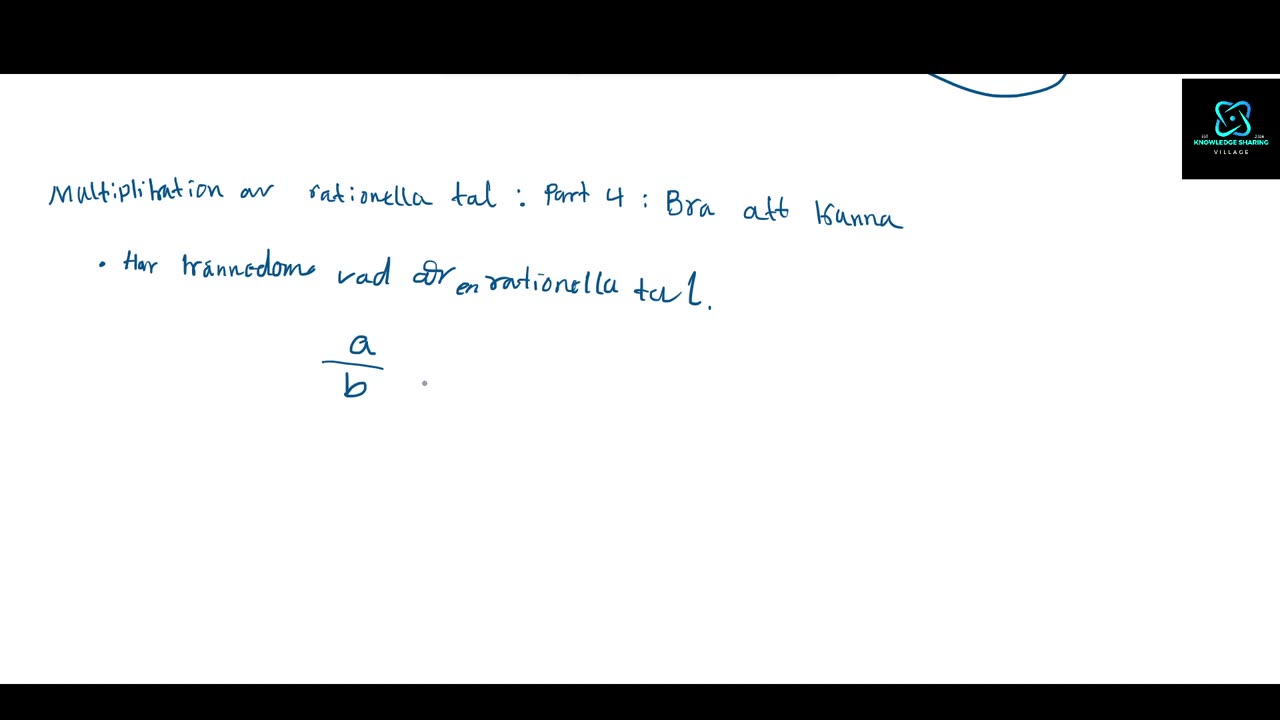 Multiplikation av rationella tal : Part 4 : Bra att kunna
• Har kännedom vad är en rationella tal.
a
b
KNOWLEDGE SHARING
VILLAGE